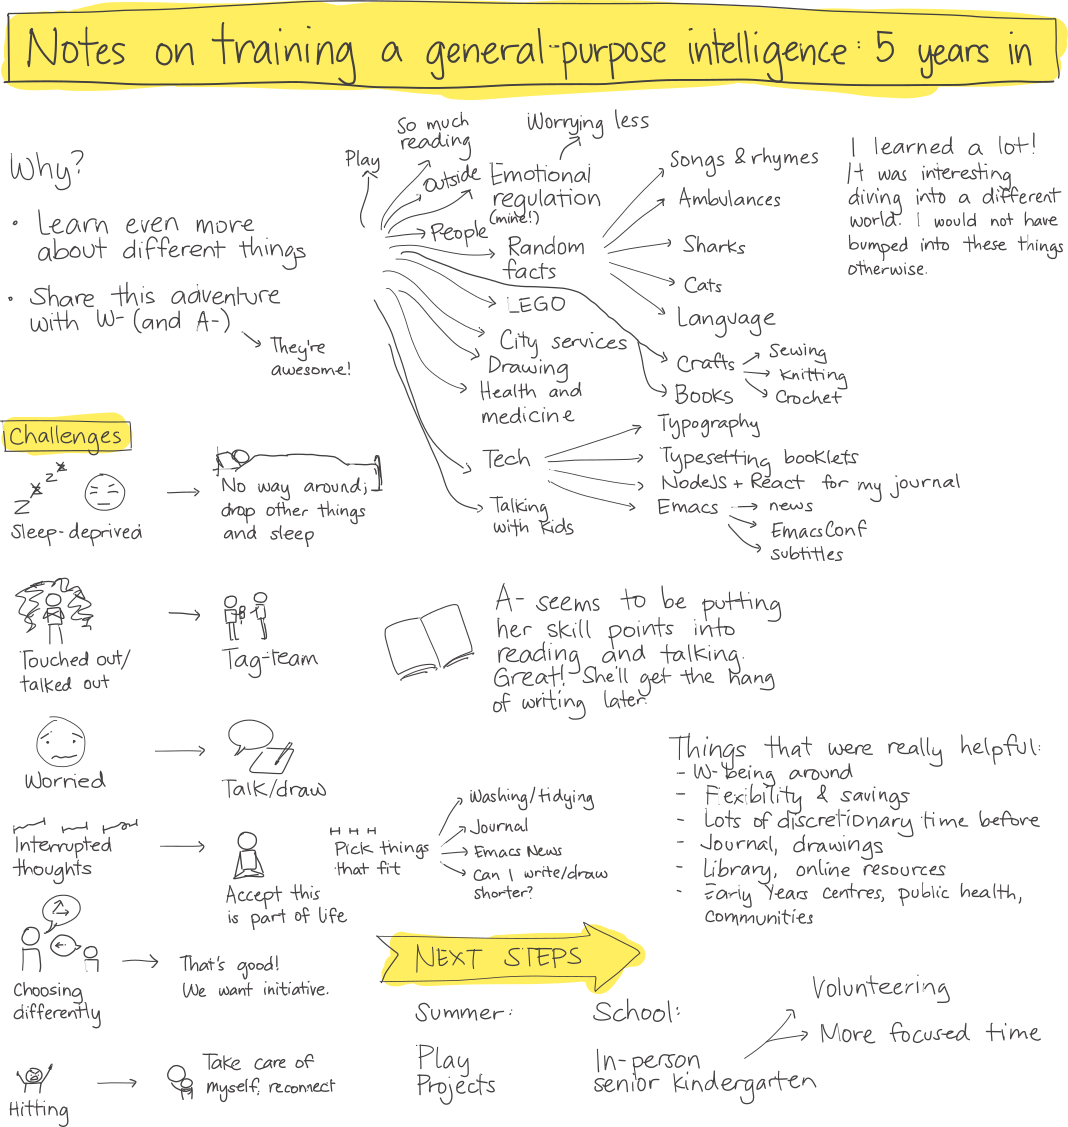 Notes on training a general-purpose intelligence: 5 years in
Why?
• Learn even more
about different things
• Share this adventure
with W- (and A-)
They're
awesome!
Play
So much
reading
Outside
Worrying less
Emotional
regulation
(mine!)
People
Random
facts
Songs & rhymes
Ambulances
Sharks
Cats
Language
LEGO
City services
Drawing
Health and
medicine
Crafts
Sewing
Knitting
Crochet
Books
Tech
Typography
Typesetting booklets
NodeJS + React for my journal
Emacs
news
EmacsConf
subtitles
Talking
with kids
I learned a lot!
It was interesting
diving into a different
world. I would not have
bumped into these things
otherwise.
Challenges
z z z
Sleep-deprived
No way around;
drop other things
and sleep
Touched out/
talked out
Tag-team
Worried
Talk/draw
Interrupted
thoughts
Accept this
is part of life
Pick things
that fit
Washing/tidying
Journal
Emacs News
Can I write/draw
shorter?
Choosing
differently
That's good!
We want initiative.
Hitting
Take care of
myself, reconnect
A- seems to be putting
her skill points into
reading and talking.
Great! She'll get the hang
of writing later.
Things that were really helpful:
- W- being around
- Flexibility & savings
- Lots of discretionary time before
- Journal, drawings
- Library, online resources
- Early Years centres, public health,
communities
NEXT STEPS
Summer:
Play
Projects
School:
In-person
senior kindergarten
Volunteering
More focused time